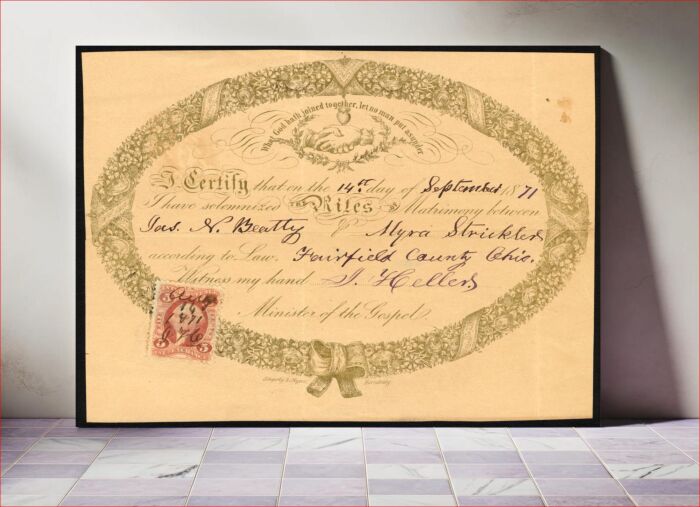 What God hath joined together, let no man put asunder
I Certify that on the 14th day of September 1871
I have solemnized THE Rites of Matrimony between
Jas. N. Beatty & Myra Strickler
according to Law. Fairfield County Ohio.
Witness my hand J. Heller
Minister of the Gospel
5 5